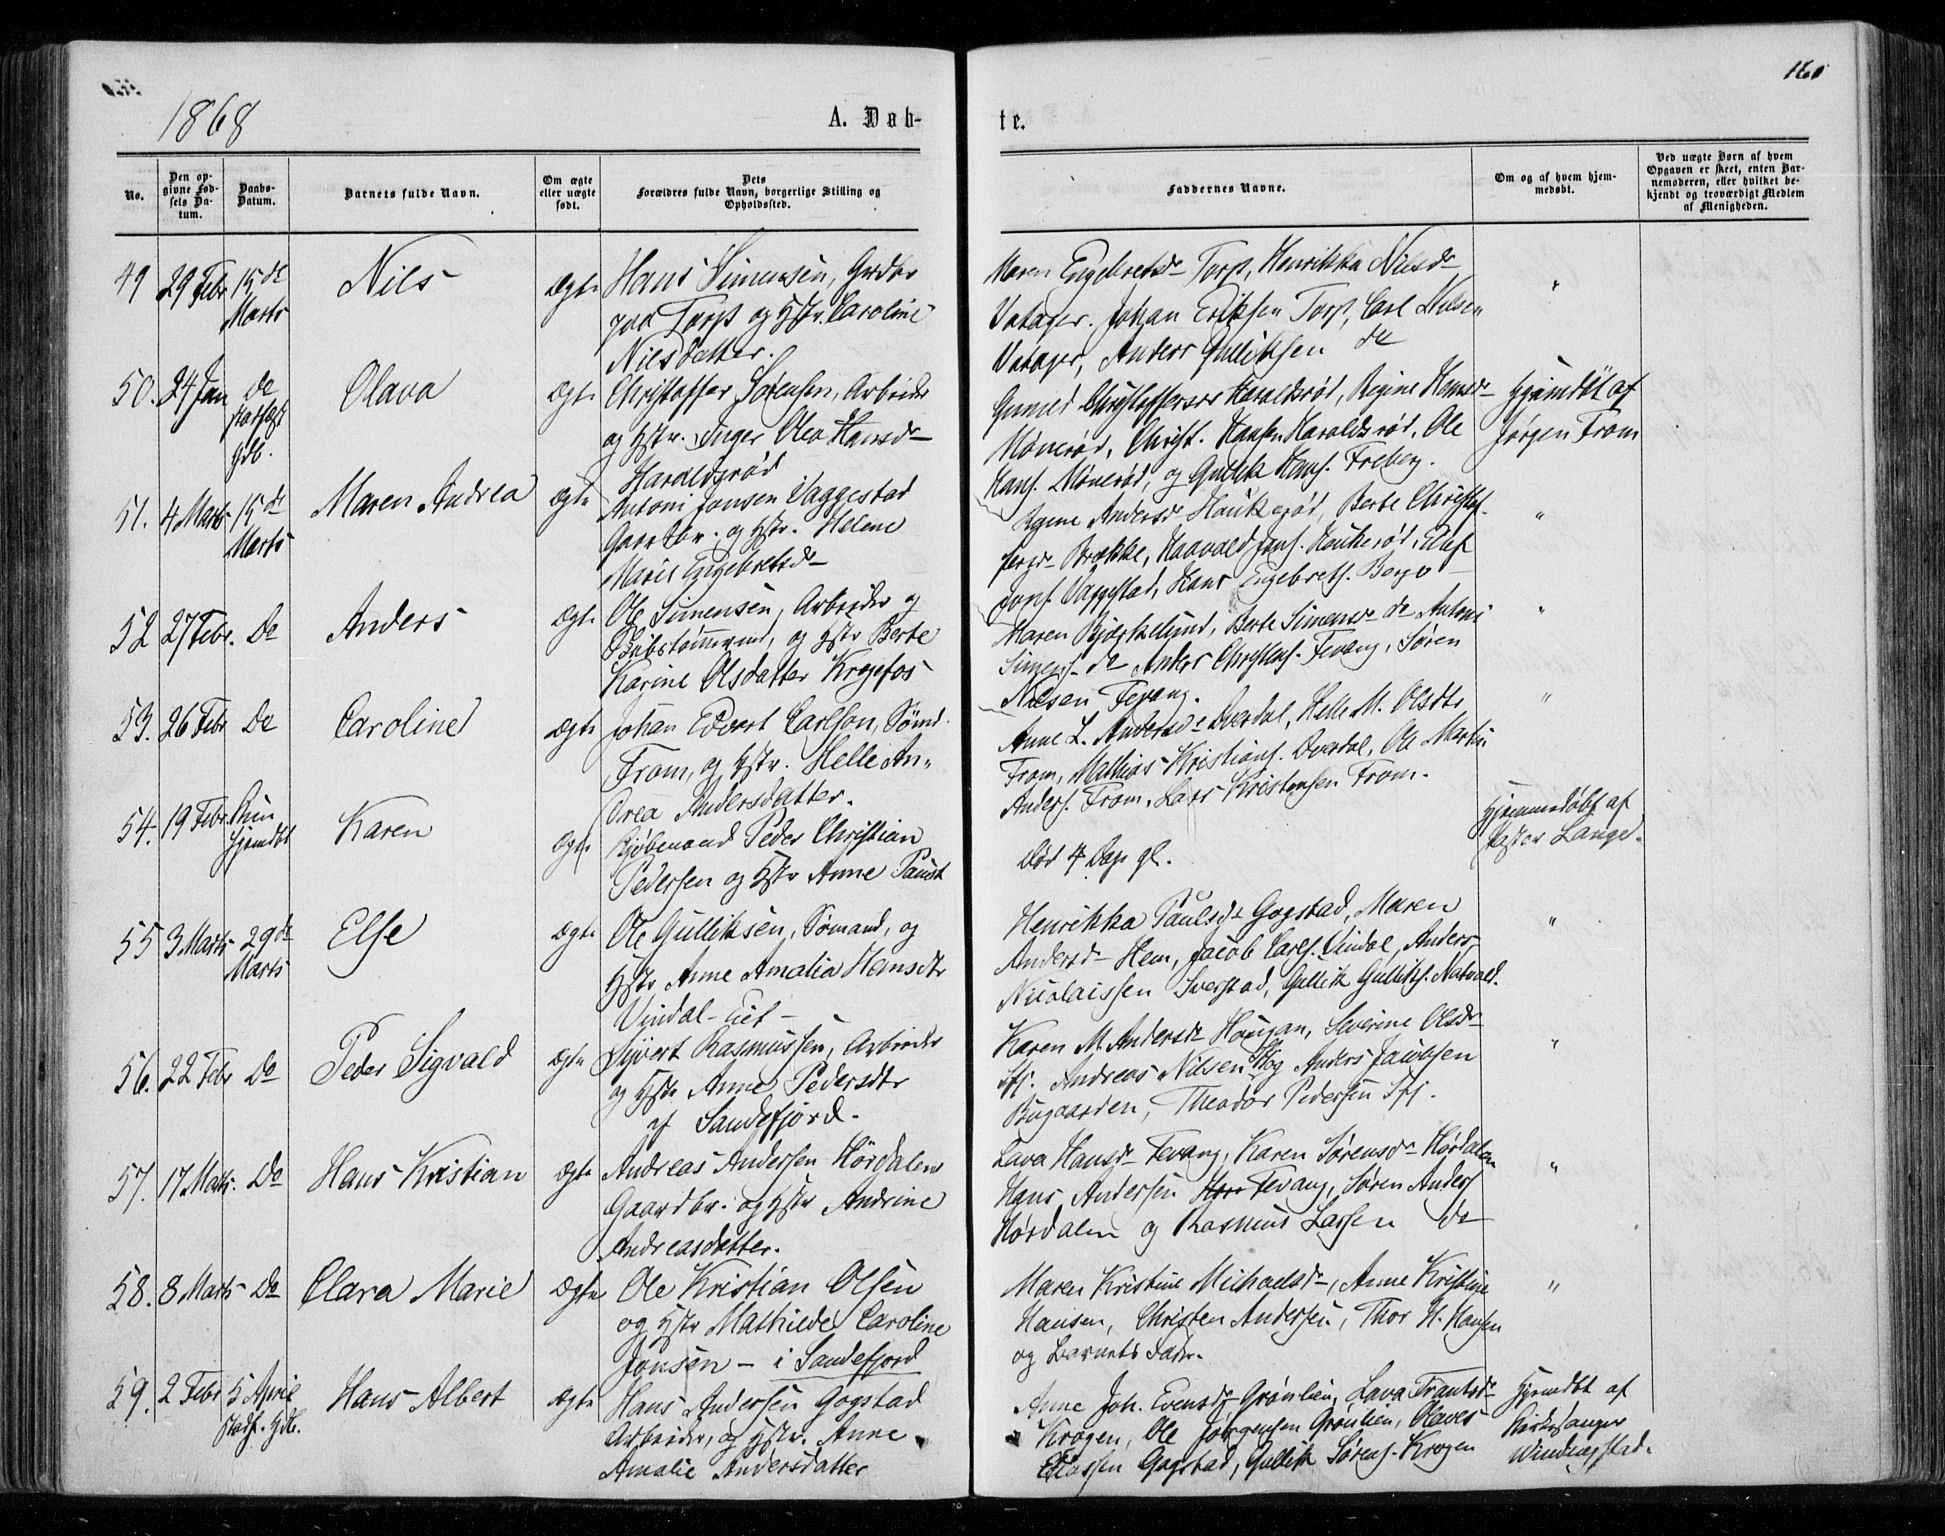 1868
A. Døb-
te.
160
No.
Den op-
givne Fød-
sels Da-
tum.
Daabs-
Datum.
Barnets fulde Navn.
Om ægte
eller uægte
født.
Dets
Forældres fulde Navn, borgerlige Stilling og
Opholdssted.
Faddernes Navne.
Om og af hvem hjem-
medøbt.
Ved uægte Børn af hvem
Opgaven er skeet, enten Bar-
nemoderen, eller hvilket be-
kjendt og troværdigt Medlem
af Menigheden.
49 29 Febr 15de
Marts
Nils
Ægte
Hans Simensen, Grdbr
paa Torp og Hstr. Caroline
Nilsdatter.
Maren Engebretsd. Torp, Henrikka Nilsd.
Vatager. Johan Eriksen Torp, Carl Nilsen
Vatager, Anders Gulliksen do
"
50. 24 Jan do
Hdb.
Olava
Ægte
Christoffer Sørensen, Arbeider
og Hstr. Inger Olea Hansd.
Haraldsrød
Gunild Christoffersd Haraldsrød, Regine Hansd.
Mönerød, Christ. Hansen Haraldsrød, Ole
Hans. Mönerød, og Gullik Hans. Freberg.
Hjemdöt af
Jørgen From
51. 4 Marts 15de
Marts
Maren Andrea
Ægte
Antoni Jonsen Vaggestad
Gaardbr. og Hstr. Helene
Marie Engebretsd.
Andersd Haukerød, Berte Christof-
fersd. Brække, Haavald Jons. Haukerød, Oluf
Jons. Vaggestad, Hans Engebrets. Berge
"
52 27 Febr. Do
Anders
Ægte
Ole Simensen, Arbeider og
Skibstømmermd, og Hstr Berte
Karine Olsdatter Krogefos
Maren Bjerkelund, Berte Simensd. do Antoni
Simens. do Anders Christens. Fevang, Søren
Nilsen Fevang.
"
53. 26 Febr Do
Caroline
Ægte
Johan Edvert Carlson, Sømd.
From, og Hstr. Helle An-
drea Andersdatter.
Anne L. Andersd. Overdal, Helle M. Olsdtr
From, Mathias Kristians. Overdal, Ole Martin
Anders. From, Lars Kristensen From.
"
54. 19 Febr.
Hjemdbt
Karen
Ægte
Kjøbmand Peder Christian
Pedersen og Hstr Anne Paust
Död 4 Dage gl.
Hjemmedøbt af
Pastor Lange.
55 3 Marts 29de
Marts
Else
Ægte
Ole Gulliksen, Sømand, og
Hstr Anne Amalia Hansdtr
Vindal-Eiet
Henrikka Paulsd. Gogstad, Maren
Andersd. Hem, Jacob Carls. Vindal, Anders
Nicolaissen Sverstad, Gullik Gulliks. Natvald.
"
56. 22 Febr Do
Peder Sigvald
Ægte
Syvert Rasmussen, Arbeider
og Hstr Anne Pedersdtr
af Sandefjord.
Karen M. Andersd. Haugan, Severine Olsd.
Sfj. Andreas Nilsen Skog Anders Jacobsen
Bugaarden, Theodor Pedersen Sfj.
"
57. 17 Marts. Do
Hans Kristian
Ægte
Andreas Andersen Hørdalen
Gaardbr. og Hstr Andrine
Andreasdatter.
Lava Hansd. Fevang, Karen Sørensd. Hørdalen
Hans Andersen Fevang, Søren Anders
Hørdalen og Rasmus Larsen do
"
58. 8 Marts Do
Clara Marie
Ægte
Ole Kristian Olsen
og Hstr Mathilde Caroline
Jonsen - i Sandefjord
Maren Kristine Michaelsd., Anne Kristine
Hansen, Christen Andersen, Thor H. Hansen
og Barnets Fader.
"
59. 2 Febr 5 April
Stadf. Hdb.
Hans Albert
Ægte
Hans Andersen Gogstad
Arbeider, og Hstr. Anne
Amalie Andersdatter
Anne Joh. Evensd. Grønlien, Lava Frantsd.
Krogen, Ole Jørgensen Grønlien, Olaves
Eliassen Gogstad, Gullik Sørens. Krogen
Hjemdbt af
Kirkesanger
Vindingstad.